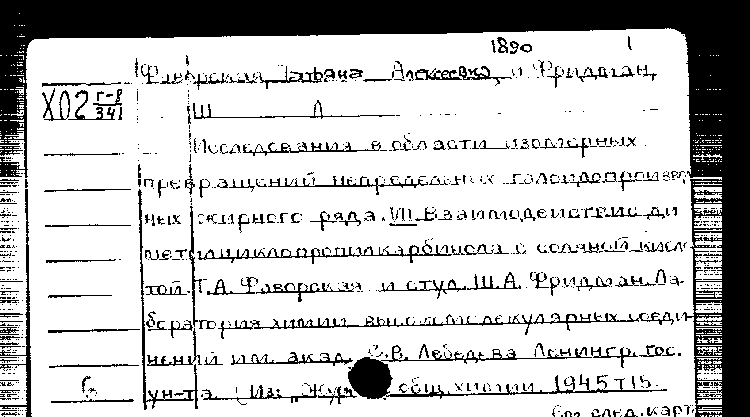 1890 1
Фаворская, Татьяна Алексеевна, и Фридман,
Х02 Г-8/341 Ш А
Исследования в области изомерных
превращений непредельных галоидопроизвод
ных жирного ряда. VII. Взаимодействие ди
метилциклопропилкарбинола с соляной кисло
той. Т.А. Фаворская и студ. Ш.А. Фридман. Ла
боратория химии высокомолекулярных соеди
нений им. акад. С.В. Лебедева Ленингр. гос.
ун-та. (Из: "Журн общ. химии. 1945 т 15
см. след. карт